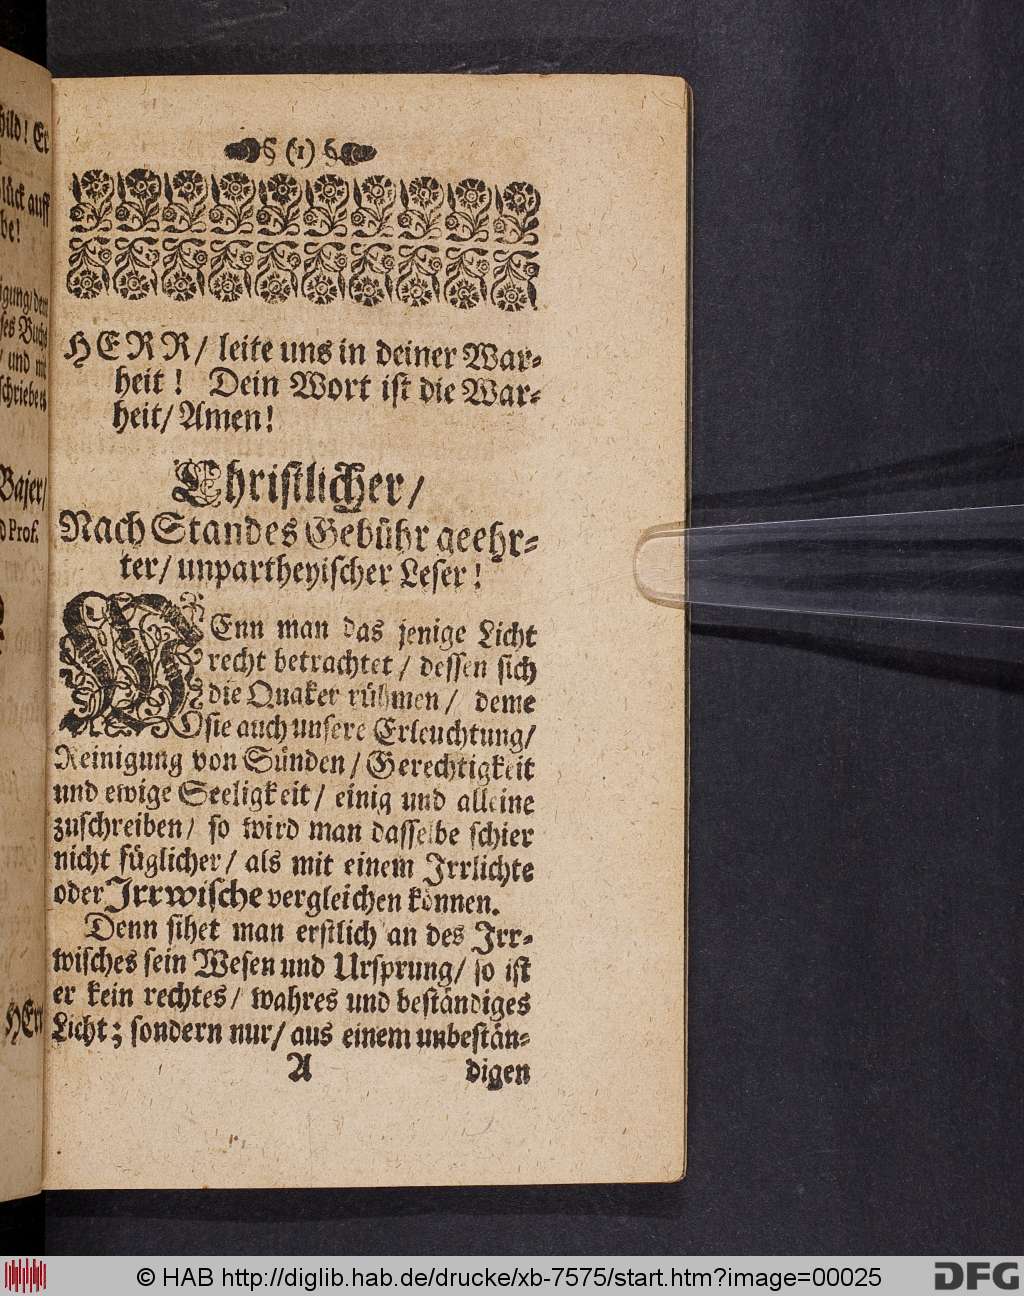 hild! Er
lück auff
be!
igung/dem
ses Buchs
/ und mit
schriebe es
Bajer/
d Prof.
HErr
§ (1) §
HERR/ leite uns in deiner War-
heit! Dein Wort ist die War-
heit/ Amen!
Christlicher/
Nach Standes Gebühr geehr-
ter/ unpartheyischer Leser!
WEnn man das jenige Licht
recht betrachtet/ dessen sich
die Quaker rühmen/ deme
sie auch unsere Erleuchtung/
Reinigung von Sünden/ Gerechtigkeit
und ewige Seeligkeit/ einig und alleine
zuschreiben/ so wird man dasselbe schier
nicht füglicher/ als mit einem Irrlichte
oder Irrwische vergleichen können.
Denn sihet man erstlich an des Irr-
wisches sein Wesen und Ursprung/ so ist
er kein rechtes/ wahres und beständiges
Licht; sondern nur/ aus einem unbestän-
A digen
© HAB http://diglib.hab.de/drucke/xb-7575/start.htm?image=00025
DFG